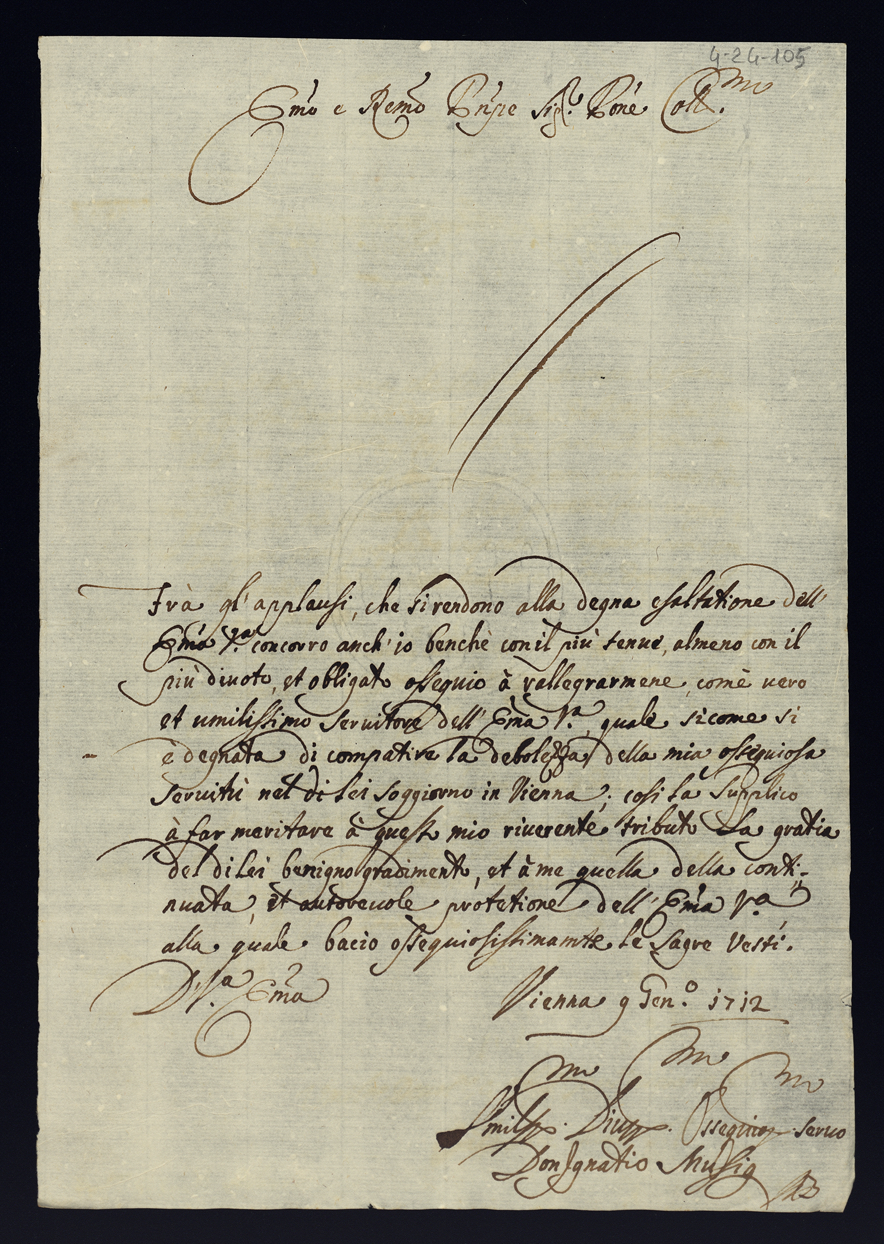 4-24-105
Emo e Remo Prnpe Sigr. Prone Collmo.
Frà gl'applausi, che si rendono alla degna esaltatione dell'
Ema Va. concorro anch'io benchè con il più tenue, almeno con il
più divoto, et obligato ossequio à rallegrarmene, come vero
et umilissimo Servitore dell'Ema Va. quale sicome si
è degnata di compatire la debolezza della mia ossequiosa
servitù nel di Lei soggiorno in Vienna; così La Supplico
à far meritare à questo mio riverente tributo La gratia
del di Lei benigno gradimento, et à me quella della conti-
nuata, et autorevole protetione dell'Ema Va
alla quale bacio ossequiosissimamte le Sagre Vesti.
D'Va. Ema
Vienna 9 Geno. 1712
mo mo mo
Umiliss. Divotiss. Ossequios. servo
Don Ignatio Mussig